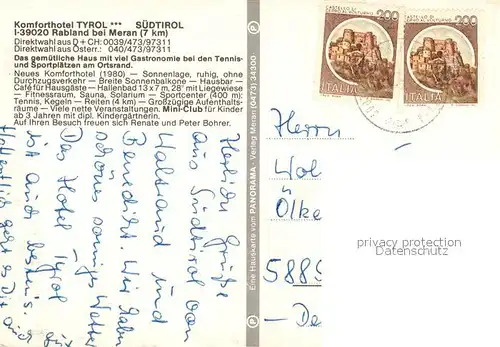 Komforthotel TYROL *** SÜDTIROL
I-39020 Rabland bei Meran (7 km)
Direktwahl aus D + CH: 0039/473/97311
Direktwahl aus Österr.: 040/473/97311
Das gemütliche Haus mit viel Gastronomie bei den Tennis-
und Sportplätzen am Ortsrand.
Neues Komforthotel (1980) — Sonnenlage, ruhig, ohne
Durchzugsverkehr — Breite Sonnenbalkone — Hausbar —
Café für Hausgäste — Hallenbad 13 x 7 m, 28° mit Liegewiese
— Fitnessraum, Sauna, Solarium — Sportcenter (400 m)
Tennis, Kegeln — Reiten (4 km) — Großzügige Aufenthalts-
räume — Viele nette Veranstaltungen. Mini-Club für Kinder
ab 3 Jahren mit dipl. Kindergärtnerin.
Auf Ihren Besuch freuen sich Renate und Peter Bohrer.
Herzliche Grüße
aus Südtirol von
Waltraud und
Benedikt. Wir haben
schönes sonniges Wetter
Das Hotel Tyrol
ist auch bestens.
Hoffentlich geht es Dir auch
gut
Eine Hauskarte vom PANORAMA - Verlag Meran (0473) 34300
CASTELLO DI
CERRO AL VOLTURNO
200
ITALIA
CASTELLO DI
CERRO AL VOLTURNO
200
ITALIA
Herrn
Wol
Ölke
5889
- De
privacy protection
Datenschutz